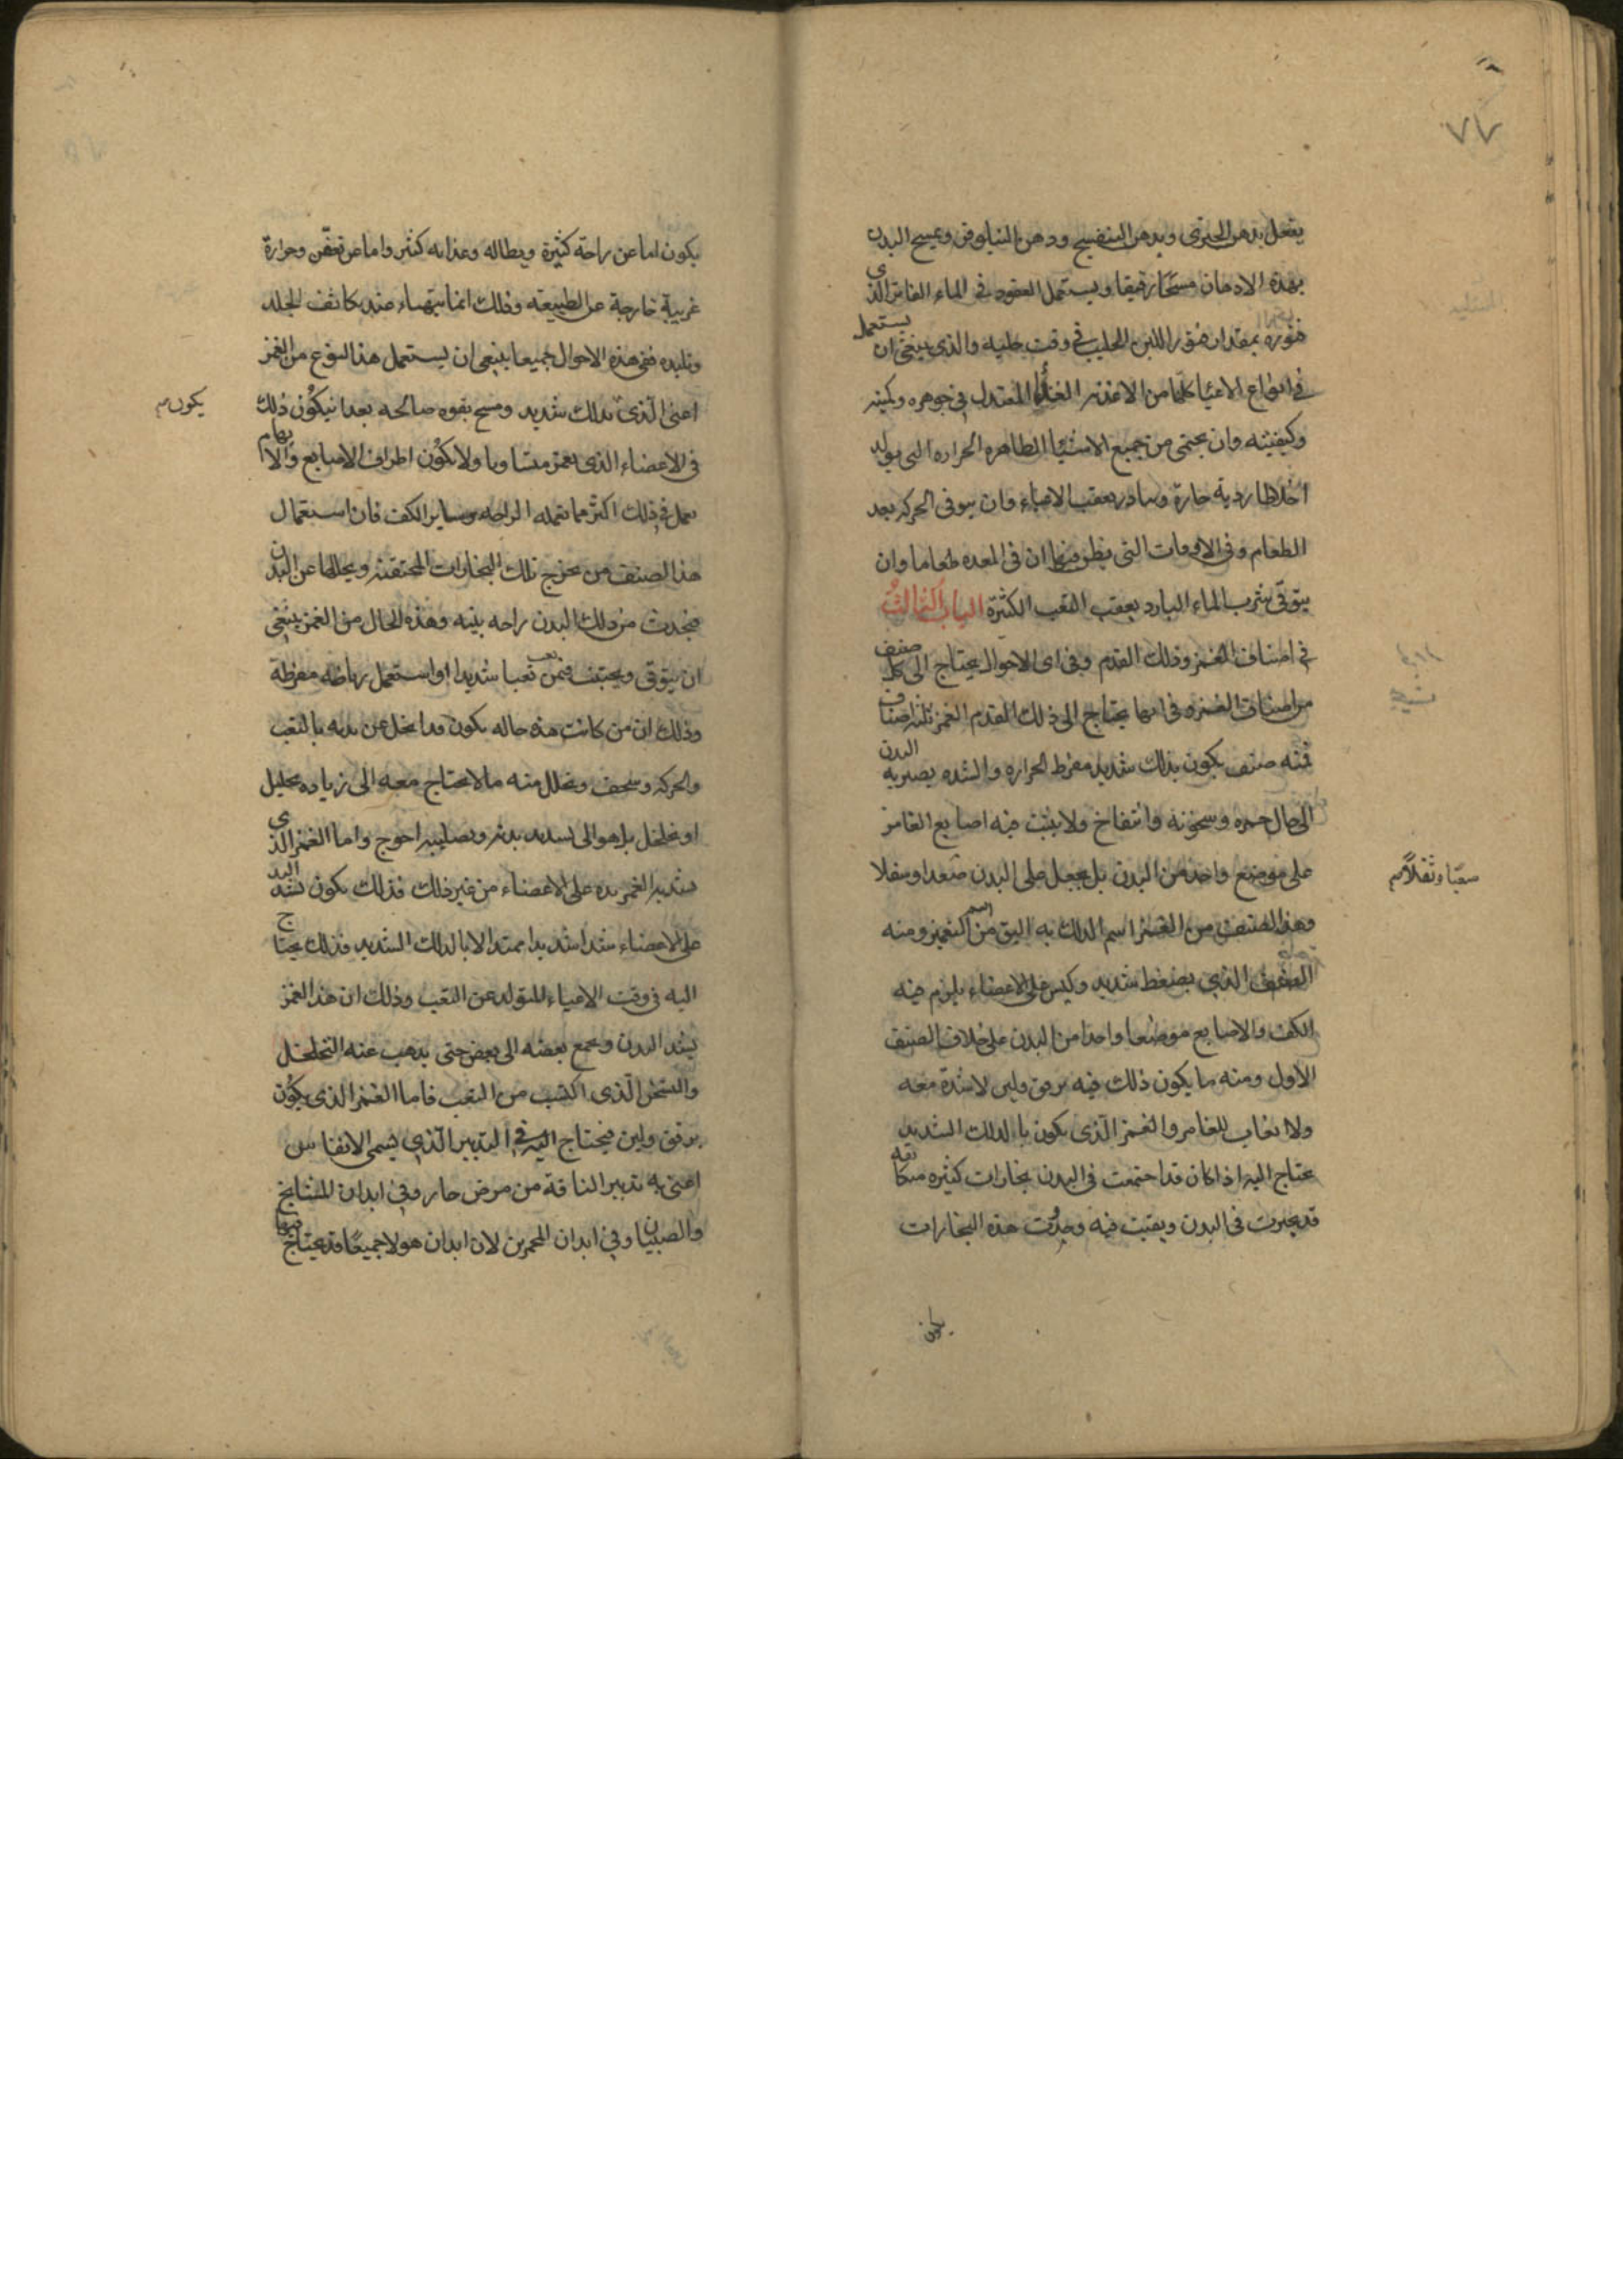 ٧٧
يفعل بدهن الخيرى وبدهن البنفسج ودهن النيلوفر ويمسح البدن
بهذه الادهان مسحا رفيقا ويستعمل القعود فى الماء الفاتر الذى
فتوره بمقدار فتور اللبن الحليب فى وقت حلبه والذى ينبغى ان يستعمل
فى انواع الاعياء كلها من الاغذيه الغذاء المعتدل فى جوهره وكميته
وكيفيته وان يحتمى من جميع الاشيا الظاهره الحراره التى يولد
اخلاطا ردية حارة بعقب الاعياء وان يتوقى الحركه بعد
الطعام وفى الاوقات التى يظن فيها ان فى المعده طعاما وان
يتوقى شرب الماء البارد بعقب التعب الكثيرة الباب الثالث
فى اصناف الغمز ودلك القدم وفى اى الاحوال يحتاج الى كل صنف
من اصناف الغمز وفى ايها يحتاج الى دلك القدم الغمز ثلثه اصناف
فمنه صنف يكون بدلك شديد مفرط الحراره والشده يصير به البدن
الى حال حمره وسخونه وانتفاخ ولا يثبت فيه اصابع الغامز
على موضع واحد من البدن بل يجعل على البدن صعدا وسفلا
وهذا الصنف من الغمز اسم الدلك به اليق من اسم الغمز ومنه
الصنف الذى بضغط شديد وكبس على الاعضاء يلزم فيه
الكف والاصابع موضعا واحدا من البدن على خلاف الصنف
الاول ومنه ما يكون ذلك فيه برفق ولين لا شدة معه
ولا اتعاب للغامز والغمز الذى يكون بالدلك الشديد
يحتاج اليه اذا كان قد اجتمعت فى البدن بخارات كثيره متكاثفه
قد تحيرت فى البدن وبقيت فيه وحدوث هذه البخارات
يكون
يكون اما عن راحة كثيرة وبطاله وغذا به كثير واما عن تعفن وحرارة
غريبة خارجة عن الطبيعة وذلك انما يتهياء عند تكاثف الجلد
وتلبده ففى هذه الاحوال جميعا ينبغى ان يستعمل هذا النوع من الغمز
اعنى الذى بدلك شديد ومسح بقوه صالحه بعد ان يكون ذلك
يكون
فى الاعضاء الذى يغمز متساويا ولا يكون اطراف الاصابع والابهام
يعمل فى ذلك اكثر مما تعمله الراحه وساير الكف فان استعمال
هذا الصنف من يخرج تلك البخارات المحتقنة ويحللها عن البدن
فيحدث من ذلك البدن راحه بينه وهذه الحال من الغمز ينبغى
ان يتوقى ويجتنب فيمن تعب تعبا شديدا او استعمل رياضه مفرطة
وذلك ان من كانت هذه حاله يكون قد انحل عن بدنه بالتعب
والحركه وسخف وتحلل منه ما لا يحتاج معه الى زياده تحليل
او تخلخل بل هو الى تشديد بدنه وتصليبه احوج واما الغمز الذى
يشد به الغامز يده على الاعضاء من غير ذلك فذلك يكون بشد اليد
على الاعضاء شدا شديدا ممتدا لا بالدلك الشديد فذلك يحتاج
اليه فى وقت الاعياء المتولد عن التعب وذلك ان هذا الغمز
يشد البدن ويجمع بعضه الى بعض حتى يذهب عنه التخلخل
والسخف الذى اكتسب من التعب فاما الغمز الذى يكون
برفق ولين فيحتاج اليه فى التدبير الذى يسمى الانعاش
اعنى به تدبير الناقه من مرض حار وفى ابدان المشايخ
والصبيان وفى ابدان المحمرين لان ابدان هولا جميعا قد يحتاج فيها